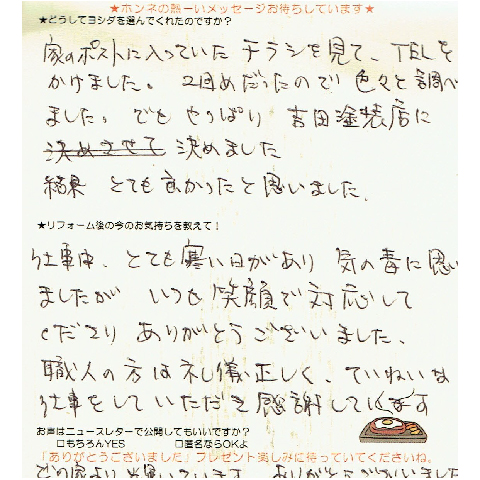 ★ホンネの熱ーいメッセージお待ちしています★
★どうしてヨシダを選んでくれたのですか？
家のポストに入っていた チラシを見て、TELを
かけました。 2回めだったので 色々と調べ
ました。でも やっぱり 吉田塗装店に
決めさせて 決めました
結果 とても良かったと思いました。
★リフォーム後の今のお気持ちを教えて！
仕事中、とても寒い日があり 気の毒に思い
ましたが いつも笑顔で対応して
くださり ありがとうございました。
職人の方は礼儀正しく、ていねいな
仕事をしていただき感謝しています
お声はニュースレターで公開してもいいですか？
□もちろんYES □匿名ならOKよ
「ありがとうございました」プレゼント楽しみに待っていてくださいね。
ありがとうございました